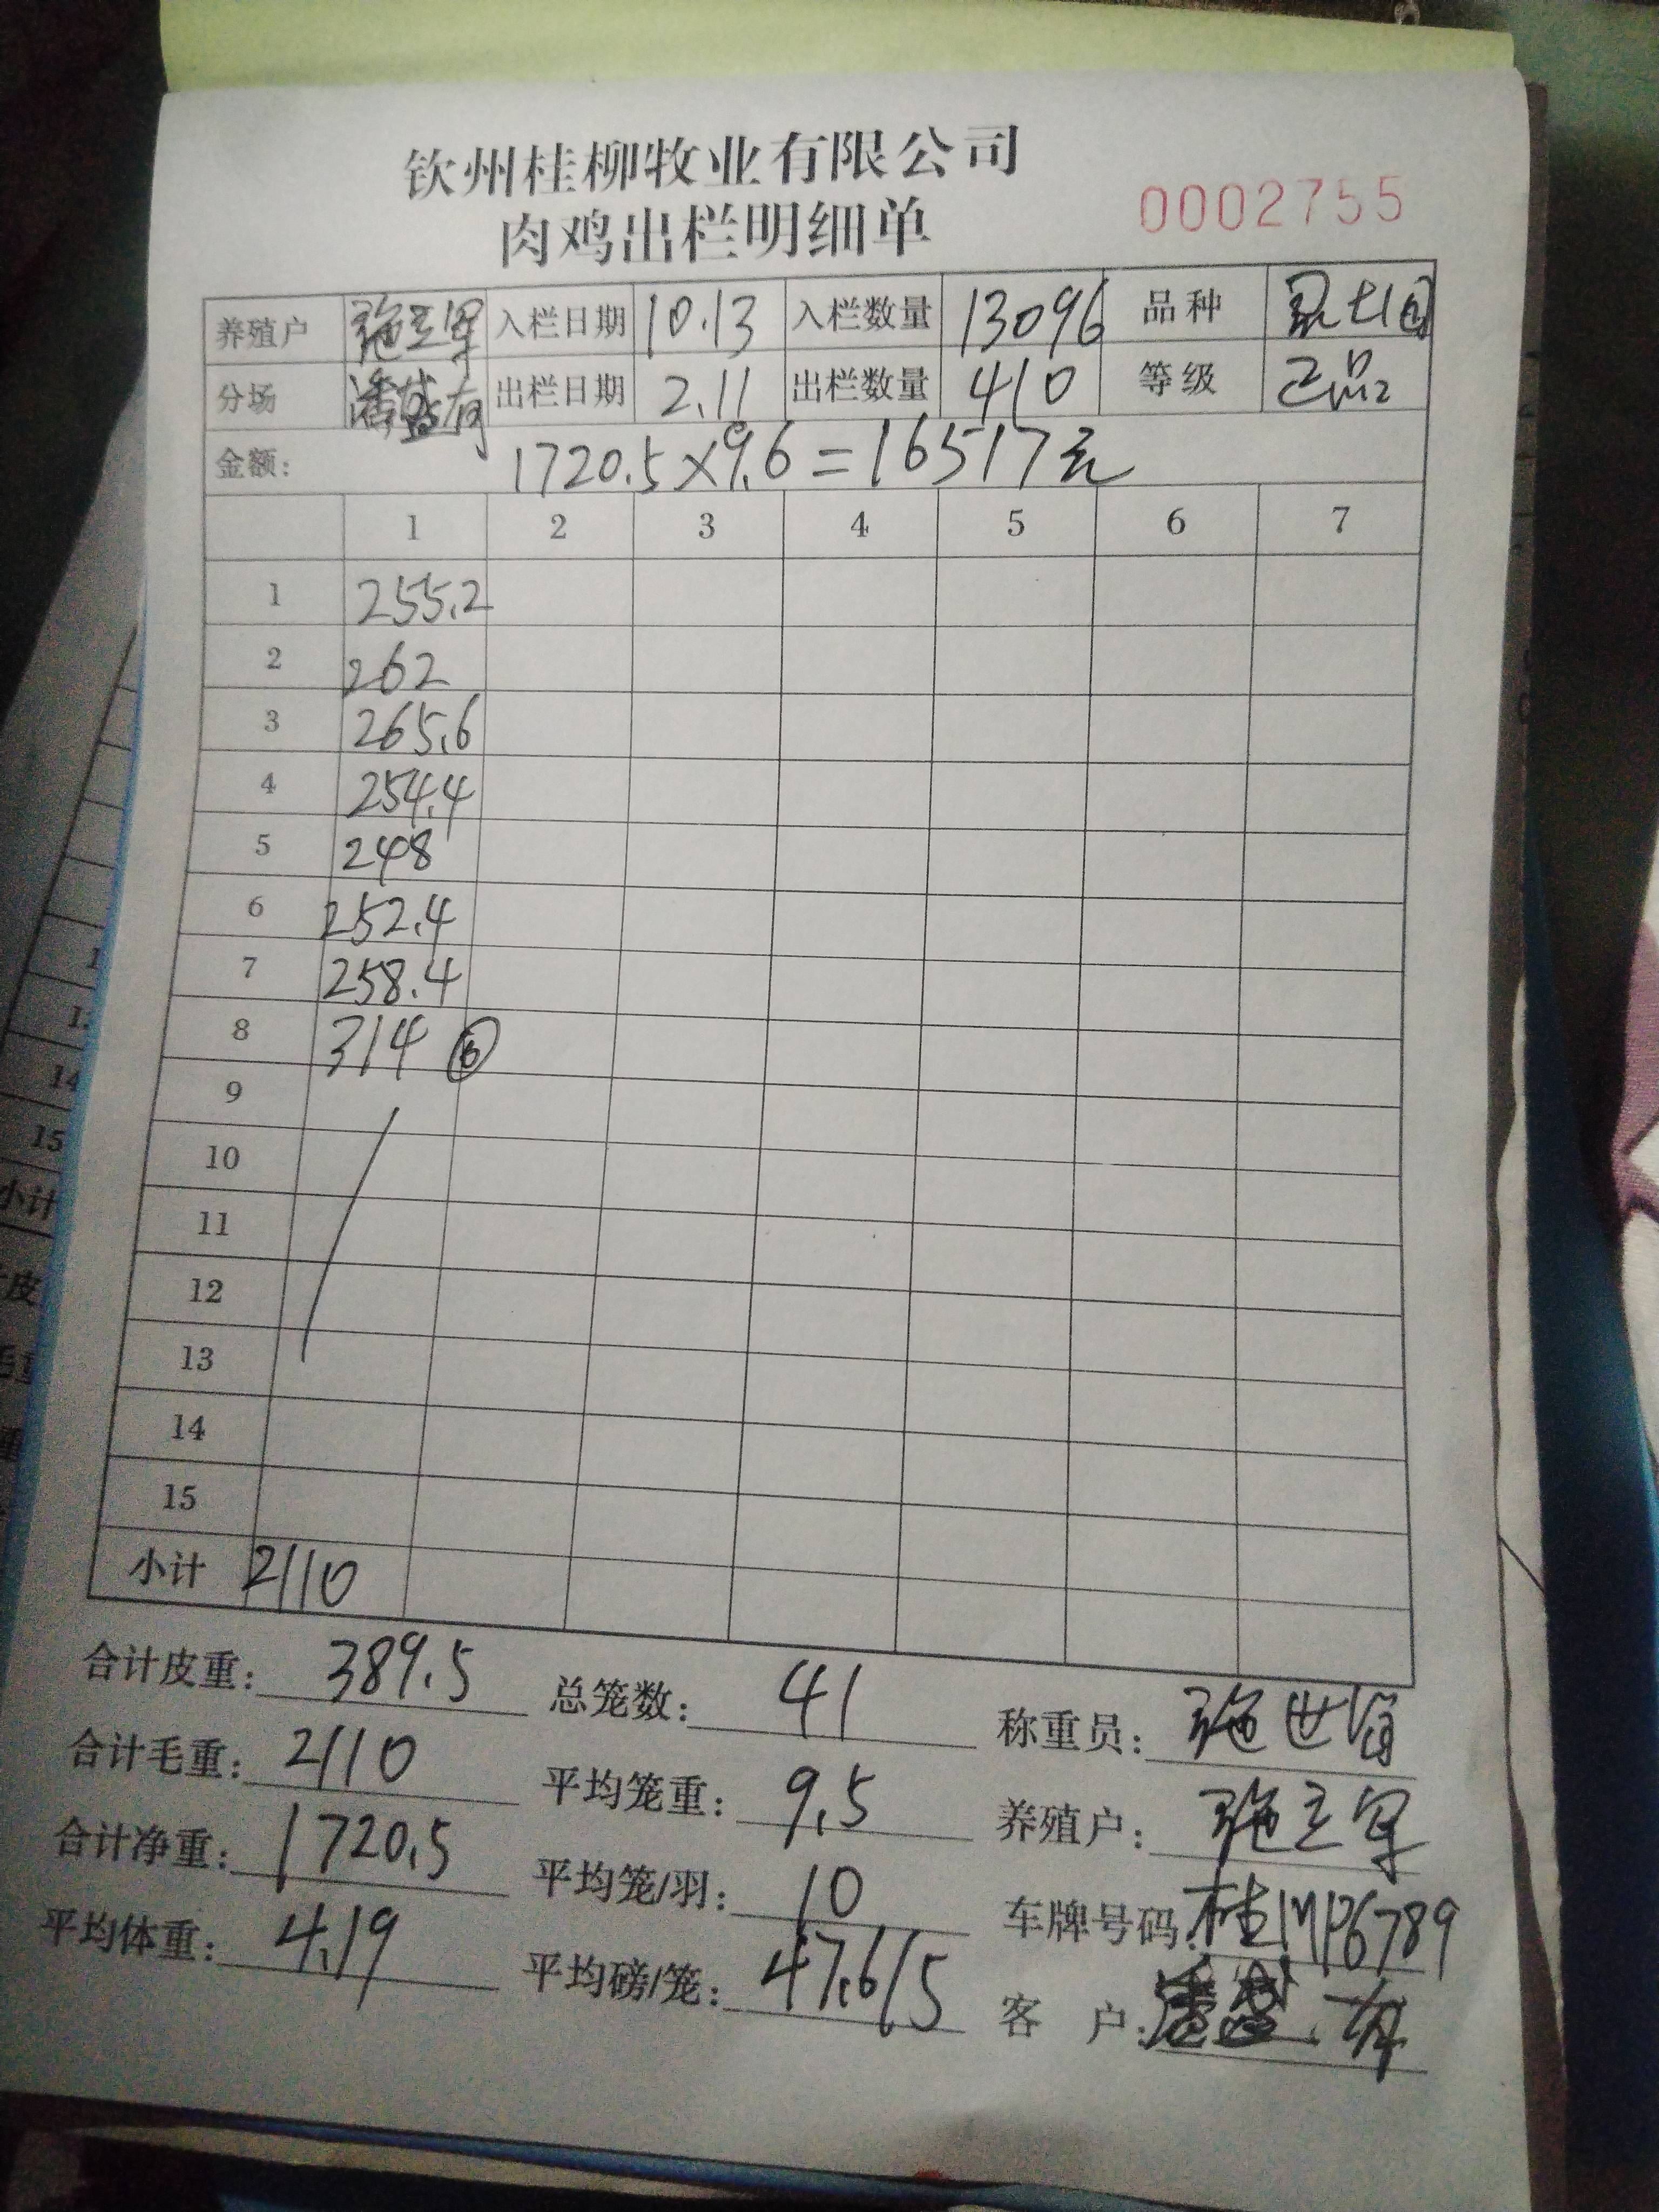 钦州桂柳牧业有限公司
肉鸡出栏明细单
0002755
养殖户 施立军 入栏日期 10.13 入栏数量 13096 品种
分场 潘盛有 出栏日期 2.11 出栏数量 410 等级 正品
金额: 1720.5×9.6=16517元
1 2 3 4 5 6 7
1 255.2
2 262
3 265.6
4 254.4
5 248
6 252.4
7 258.4
8 314 ⑥
9
10
11
12
13
14
15
小计 2110
合计皮重: 389.5 总笼数: 41 称重员: 施世
合计毛重: 2110 平均笼重: 9.5 养殖户: 施立军
合计净重: 1720.5 平均笼/羽: 10 车牌号码: 桂
平均体重: 4.19 平均磅/笼: 47.6/5 客 户: 潘盛有
14
15
小计